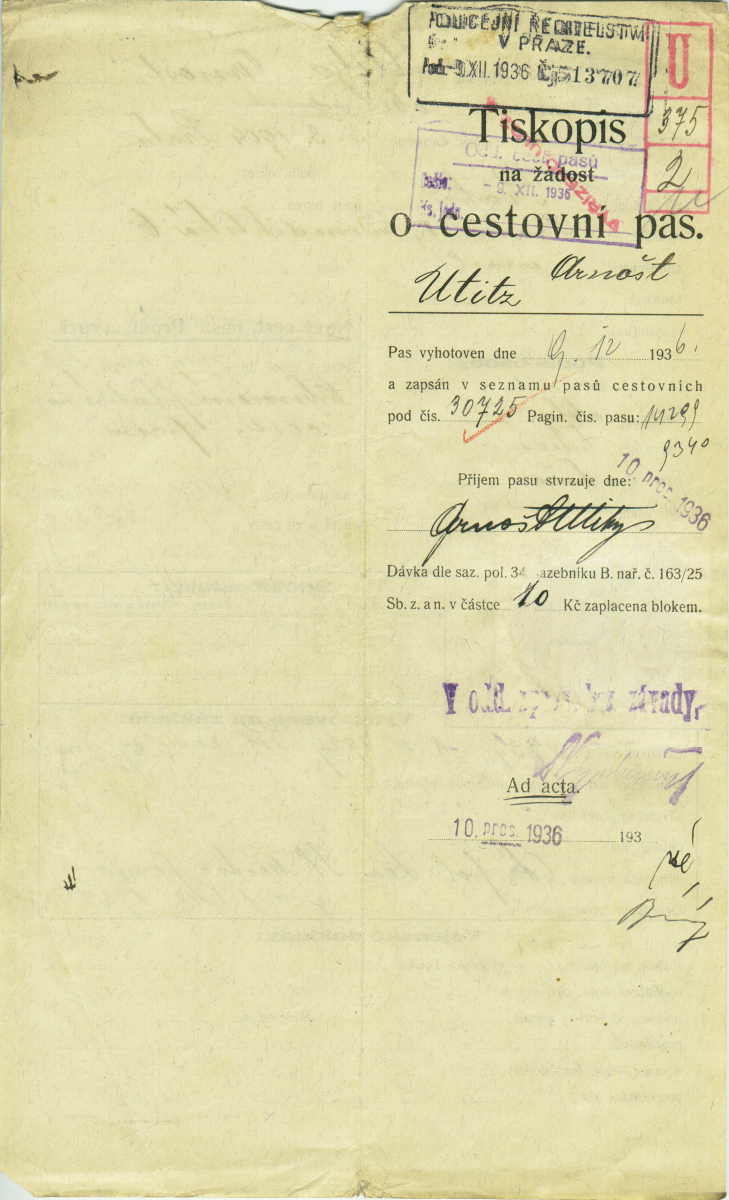 POLICEJNÍ ŘEDITELSTVÍ
V PRAZE.
9. XII. 1936 Čj. 513707
U
375
2
Tiskopis
na žádost
o cestovní pas.
Odd. cest. pasů
Došlo:
- 9. XII. 1936
Utitz Arnošt
Pas vyhotoven dne 9. 12 1936.
a zapsán v seznamu pasů cestovních
pod čís. 30725 Pagin. čís. pasu:
9340
Příjem pasu stvrzuje dne:
10. pros. 1936
Arnošt Utitz
Dávka dle saz. pol. 34 sazebníku B. nař. č. 163/25
Sb. z. a n. v částce 10 Kč zaplacena blokem.
V odd. závady,
Ad acta.
10. pros. 1936 193